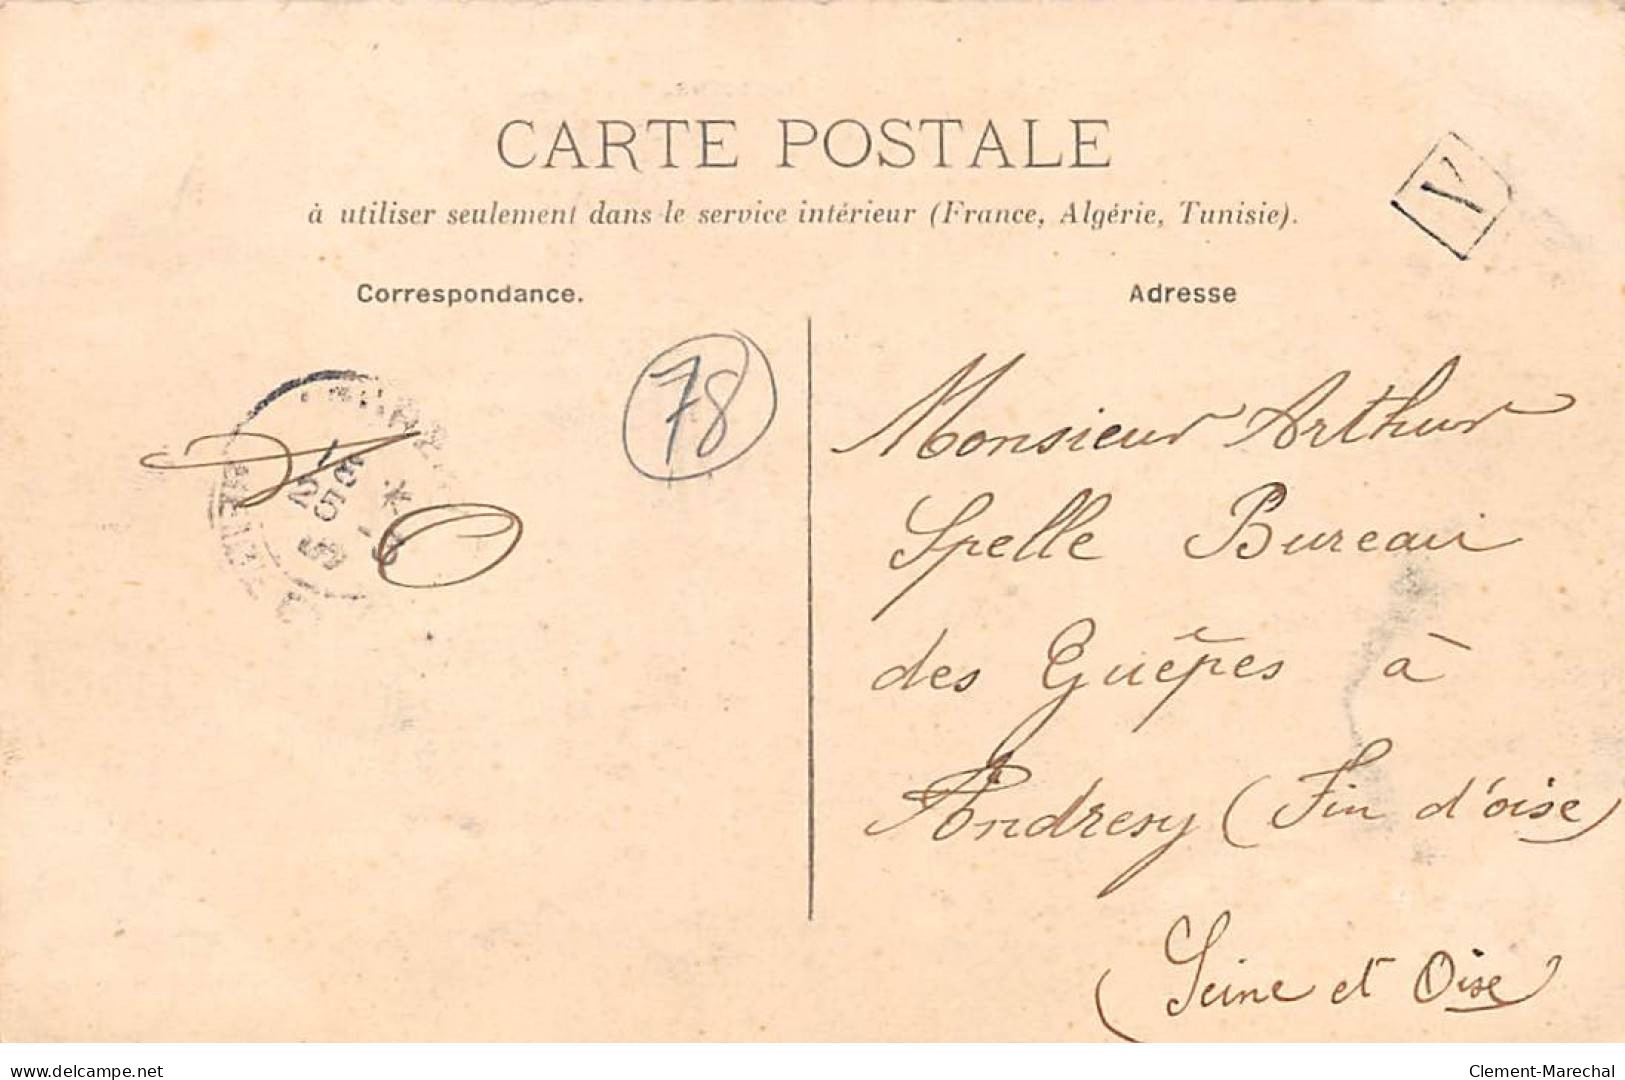 CARTE POSTALE
à utiliser seulement dans le service intérieur (France, Algérie, Tunisie).
Y
Correspondance.
Adresse
78
Monsieur Arthur
Spelle Bureau
des Guêpes à
Andresy (Fin d'oise)
(Seine et Oise
delcampe.net
Clement-Marechal